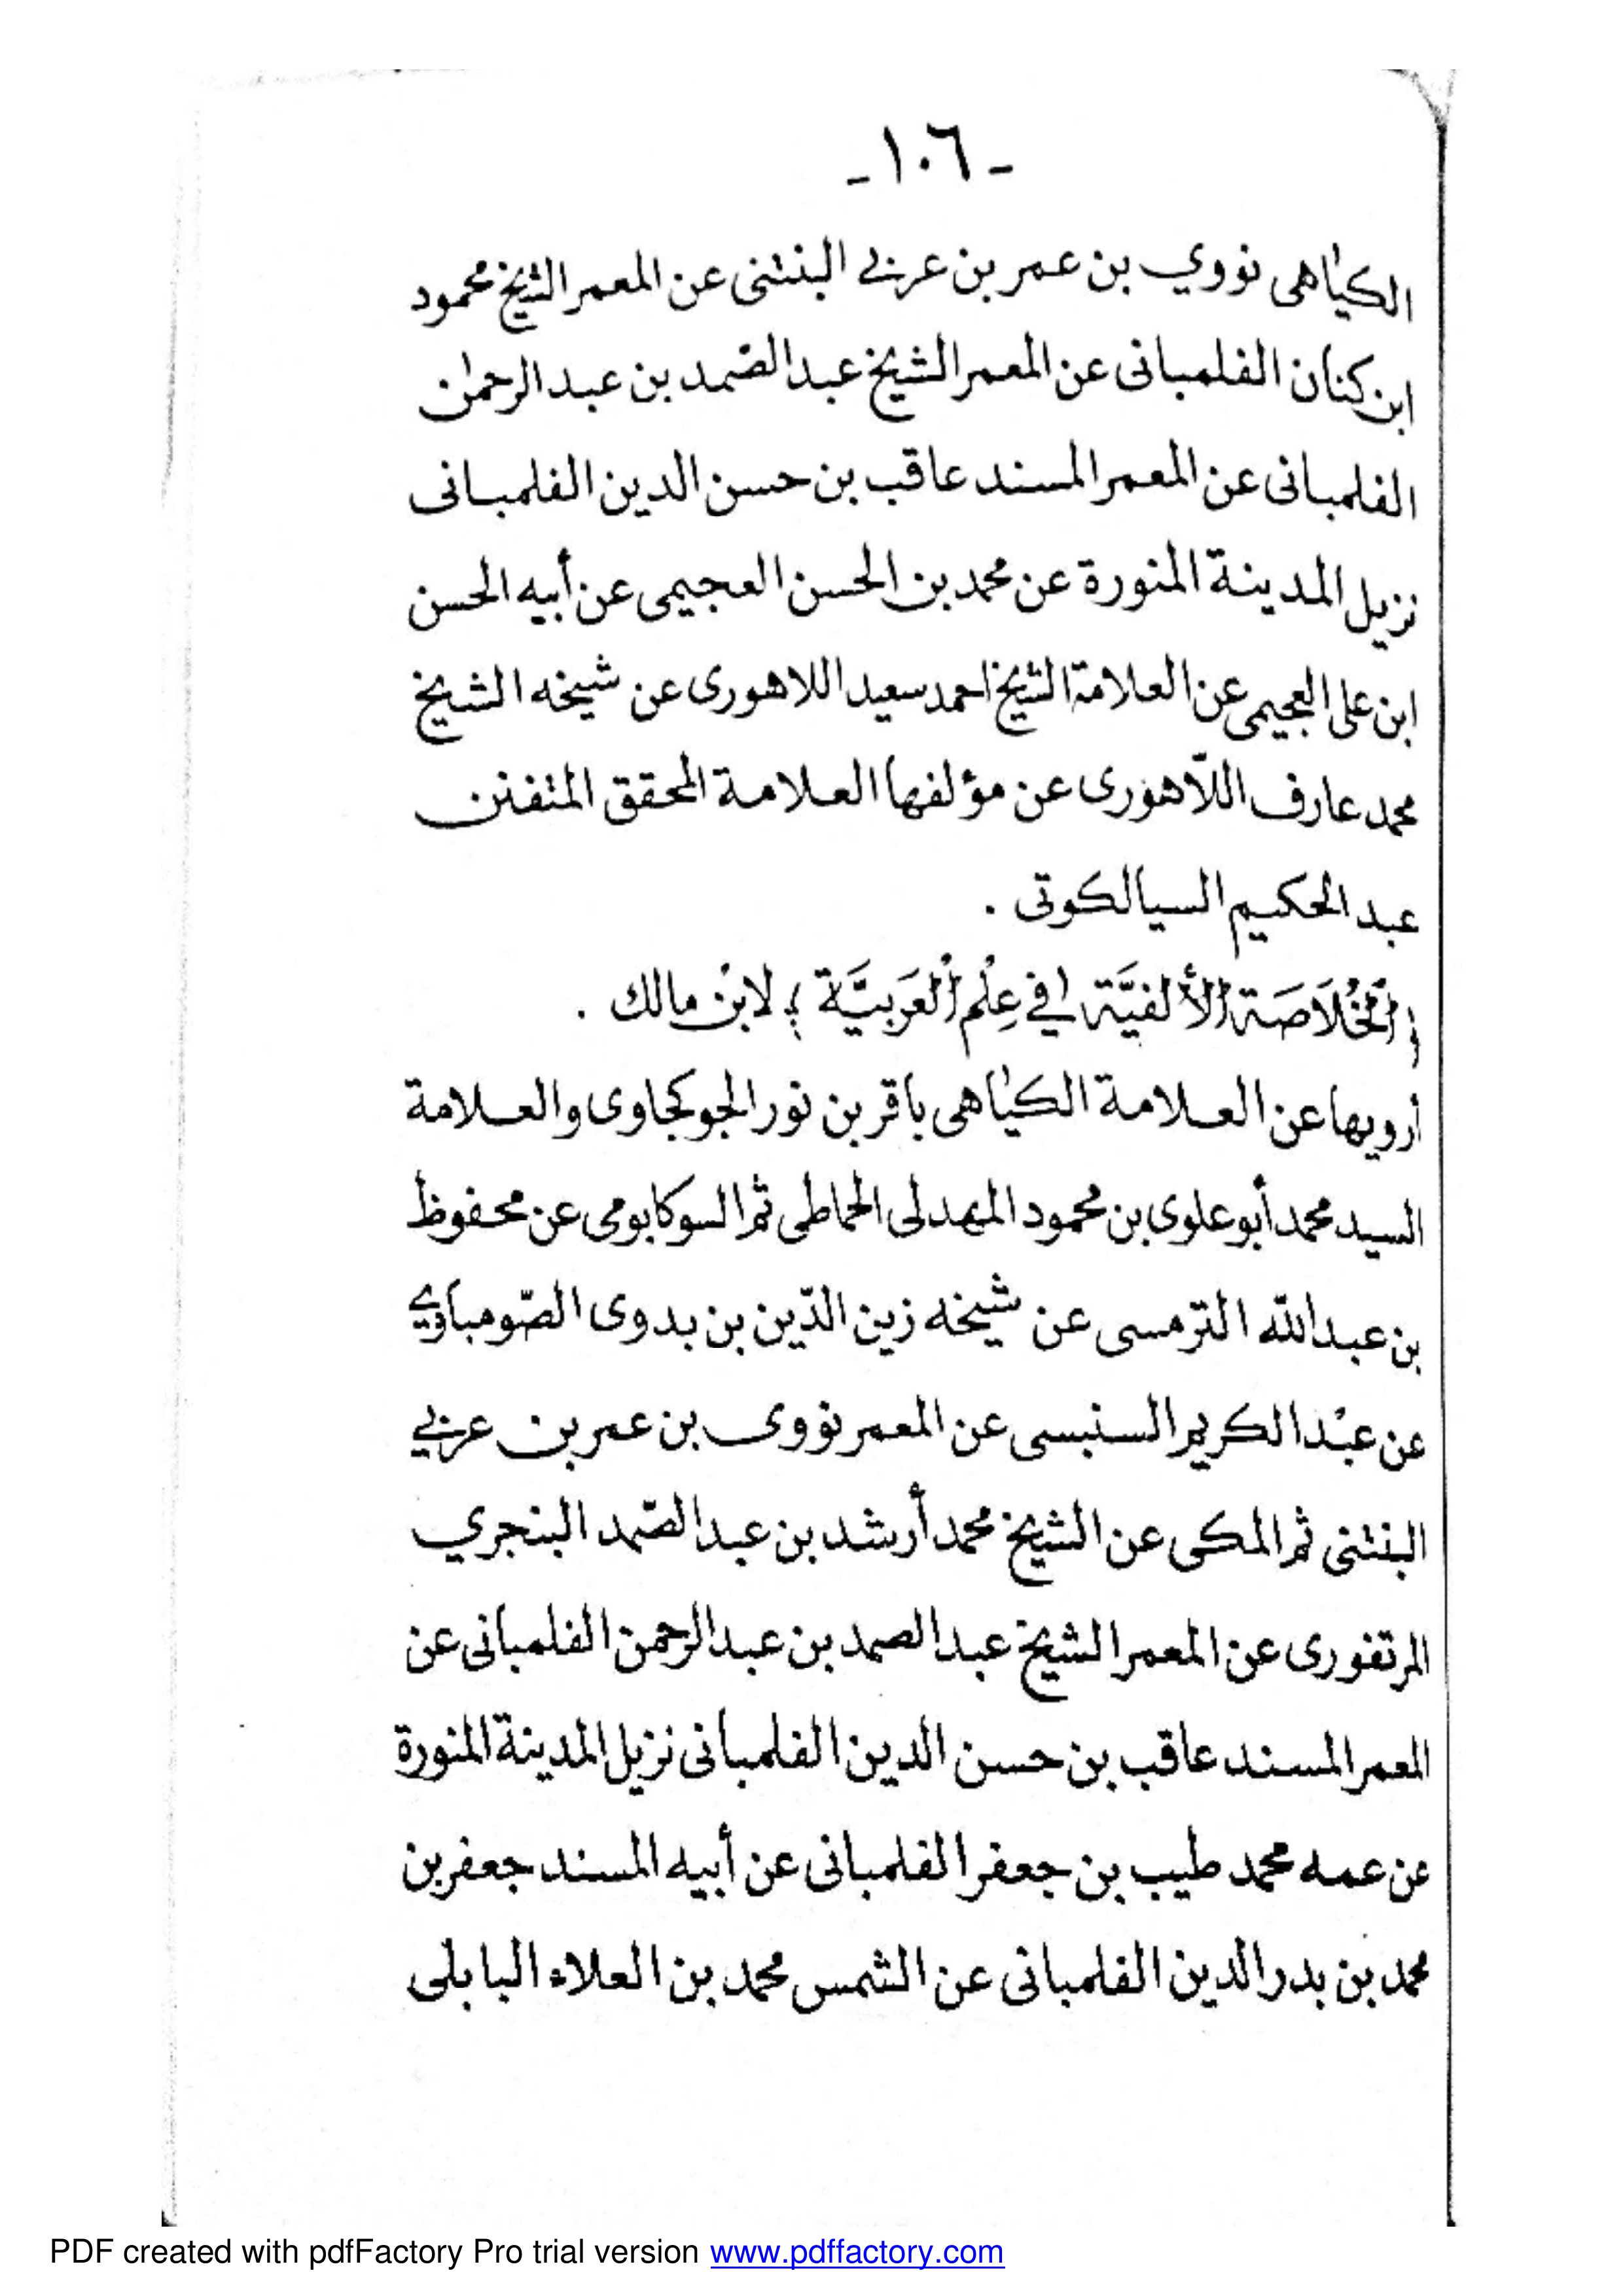 - ١٠٦ -
الكياهى نووي بن عمر بن عربي البنتنى عن المعمر الشيخ محمود
ابن كنان الفلمبانى عن المعمر الشيخ عبد الصّمد بن عبد الرحمان
الفلمبانى عن المعمر المسند عاقب بن حسن الدين الفلمبانى
نزيل المدينة المنورة عن محمد بن الحسن العجيمى عن أبيه الحسن
ابن على العجيمى عن العلامة الشيخ احمد سعيد اللاهورى عن شيخه الشيخ
محمد عارف اللّاهورى عن مؤلفها العلامة المحقق المتفنن
عبد الحكيم السيالكوتى .
﴿ اَلْخُلَاصَة الألفيَّة في عِلْم الْعَرَبيَّة ﴾ لابْن مالك .
أرويها عن العلامة الكياهى باقر بن نور الجوكجاوى والعلامة
السيد محمد أبو علوى بن محمود المهدلى الحاطى ثم السوكابومى عن محفوظ
بن عبد الله الترمسى عن شيخه زين الدّين بن بدوى الصّومباوي
عن عبْد الكريم السنبسى عن المعمر نووى بن عمر بن عربي
البنتنى ثم المكى عن الشيخ محمد أرشد بن عبد الصّمد البنجري
المرتفورى عن المعمر الشيخ عبد الصمد بن عبد الرحمن الفلمبانى عن
المعمر المسند عاقب بن حسن الدين الفلمبانى نزيل المدينة المنورة
عن عمه محمد طيب بن جعفر الفلمبانى عن أبيه المسند جعفر بن
محمد بن بدر الدين الفلمبانى عن الشمس محمد بن العلاء البابلى
PDF created with pdfFactory Pro trial version www.pdffactory.com